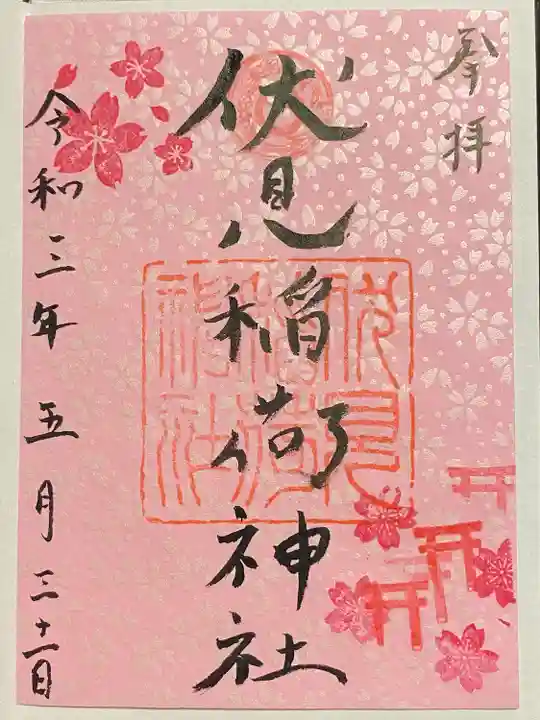 奉拝
伏見稲荷神社
伏見
稲荷
神社
令和三年五月三十一日